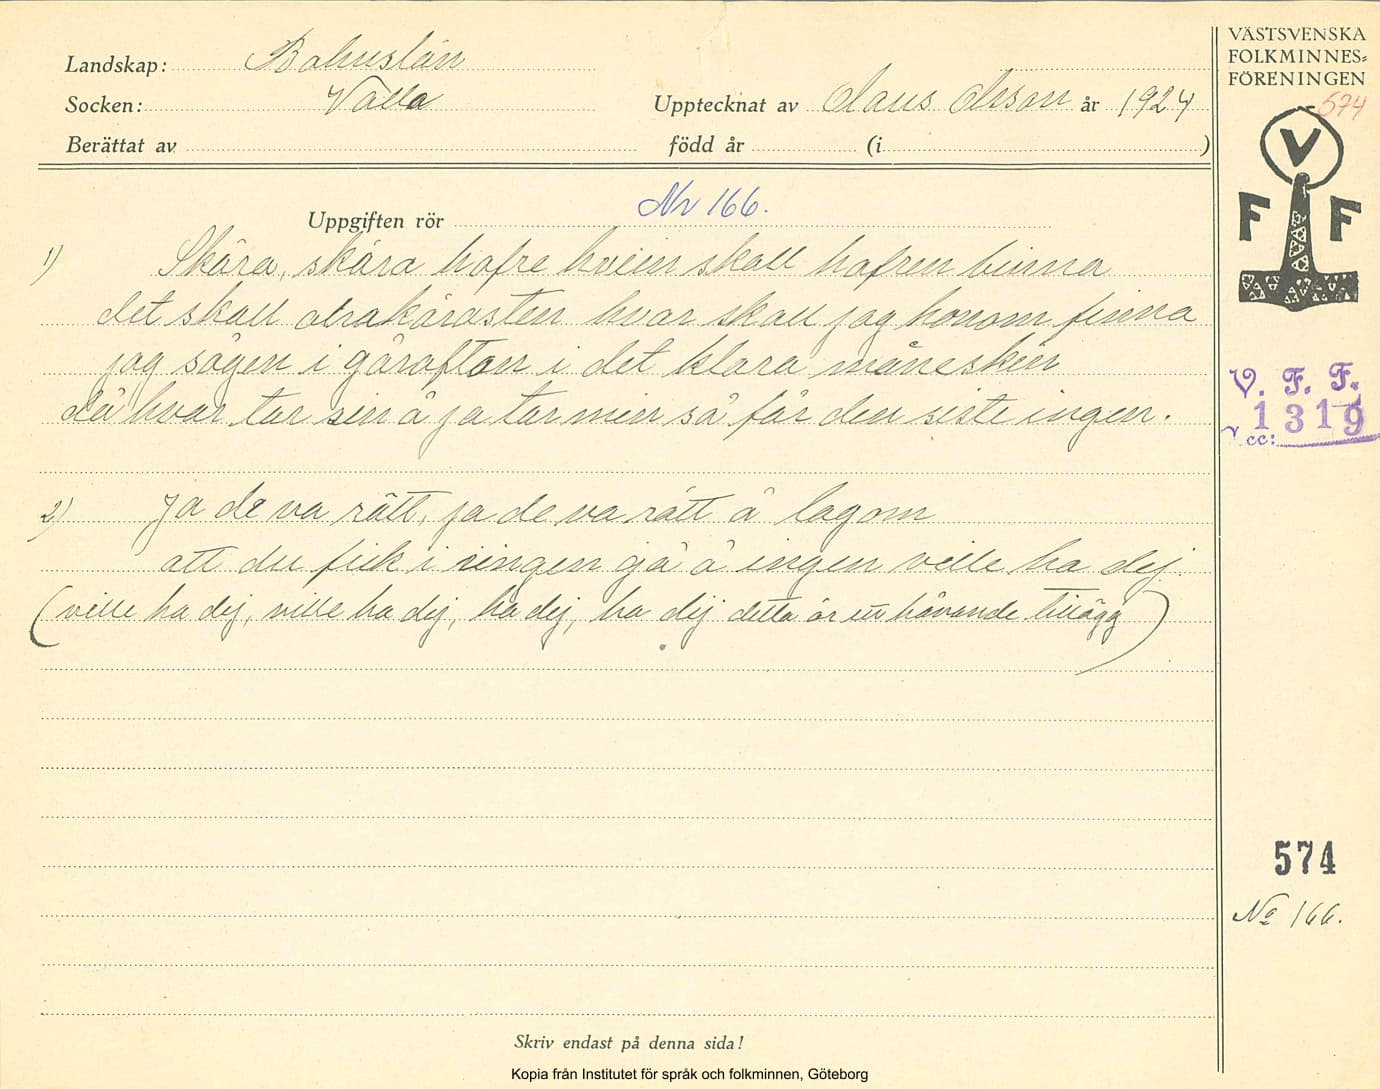 Landskap: Bohuslän
Socken: Valla
Upptecknat av Claus Olsson år 1924
Berättat av
född år (i )
VÄSTSVENSKA
FOLKMINNES=
FÖRENINGEN
574
V
F F
Uppgiften rör Nr 166.
1) Skära, skära hafre hvem skall hafren binna
det skall allrakärasten hvar skall jag honom finna
jag sågen i gårafton i det klara månesken
då hvar tar sin å ja tar min så får den siste ingen.
V. F. F.
1319
acc:
2) Ja de va rätt, ja de va rätt å lagom
att du fick i ringen gå å ingen ville ha dej.
(ville ha dej, ville ha dej, ha dej, ha dej detta är ett hånande tillägg)
574
No 166.
Skriv endast på denna sida!
Kopia från Institutet för språk och folkminnen, Göteborg